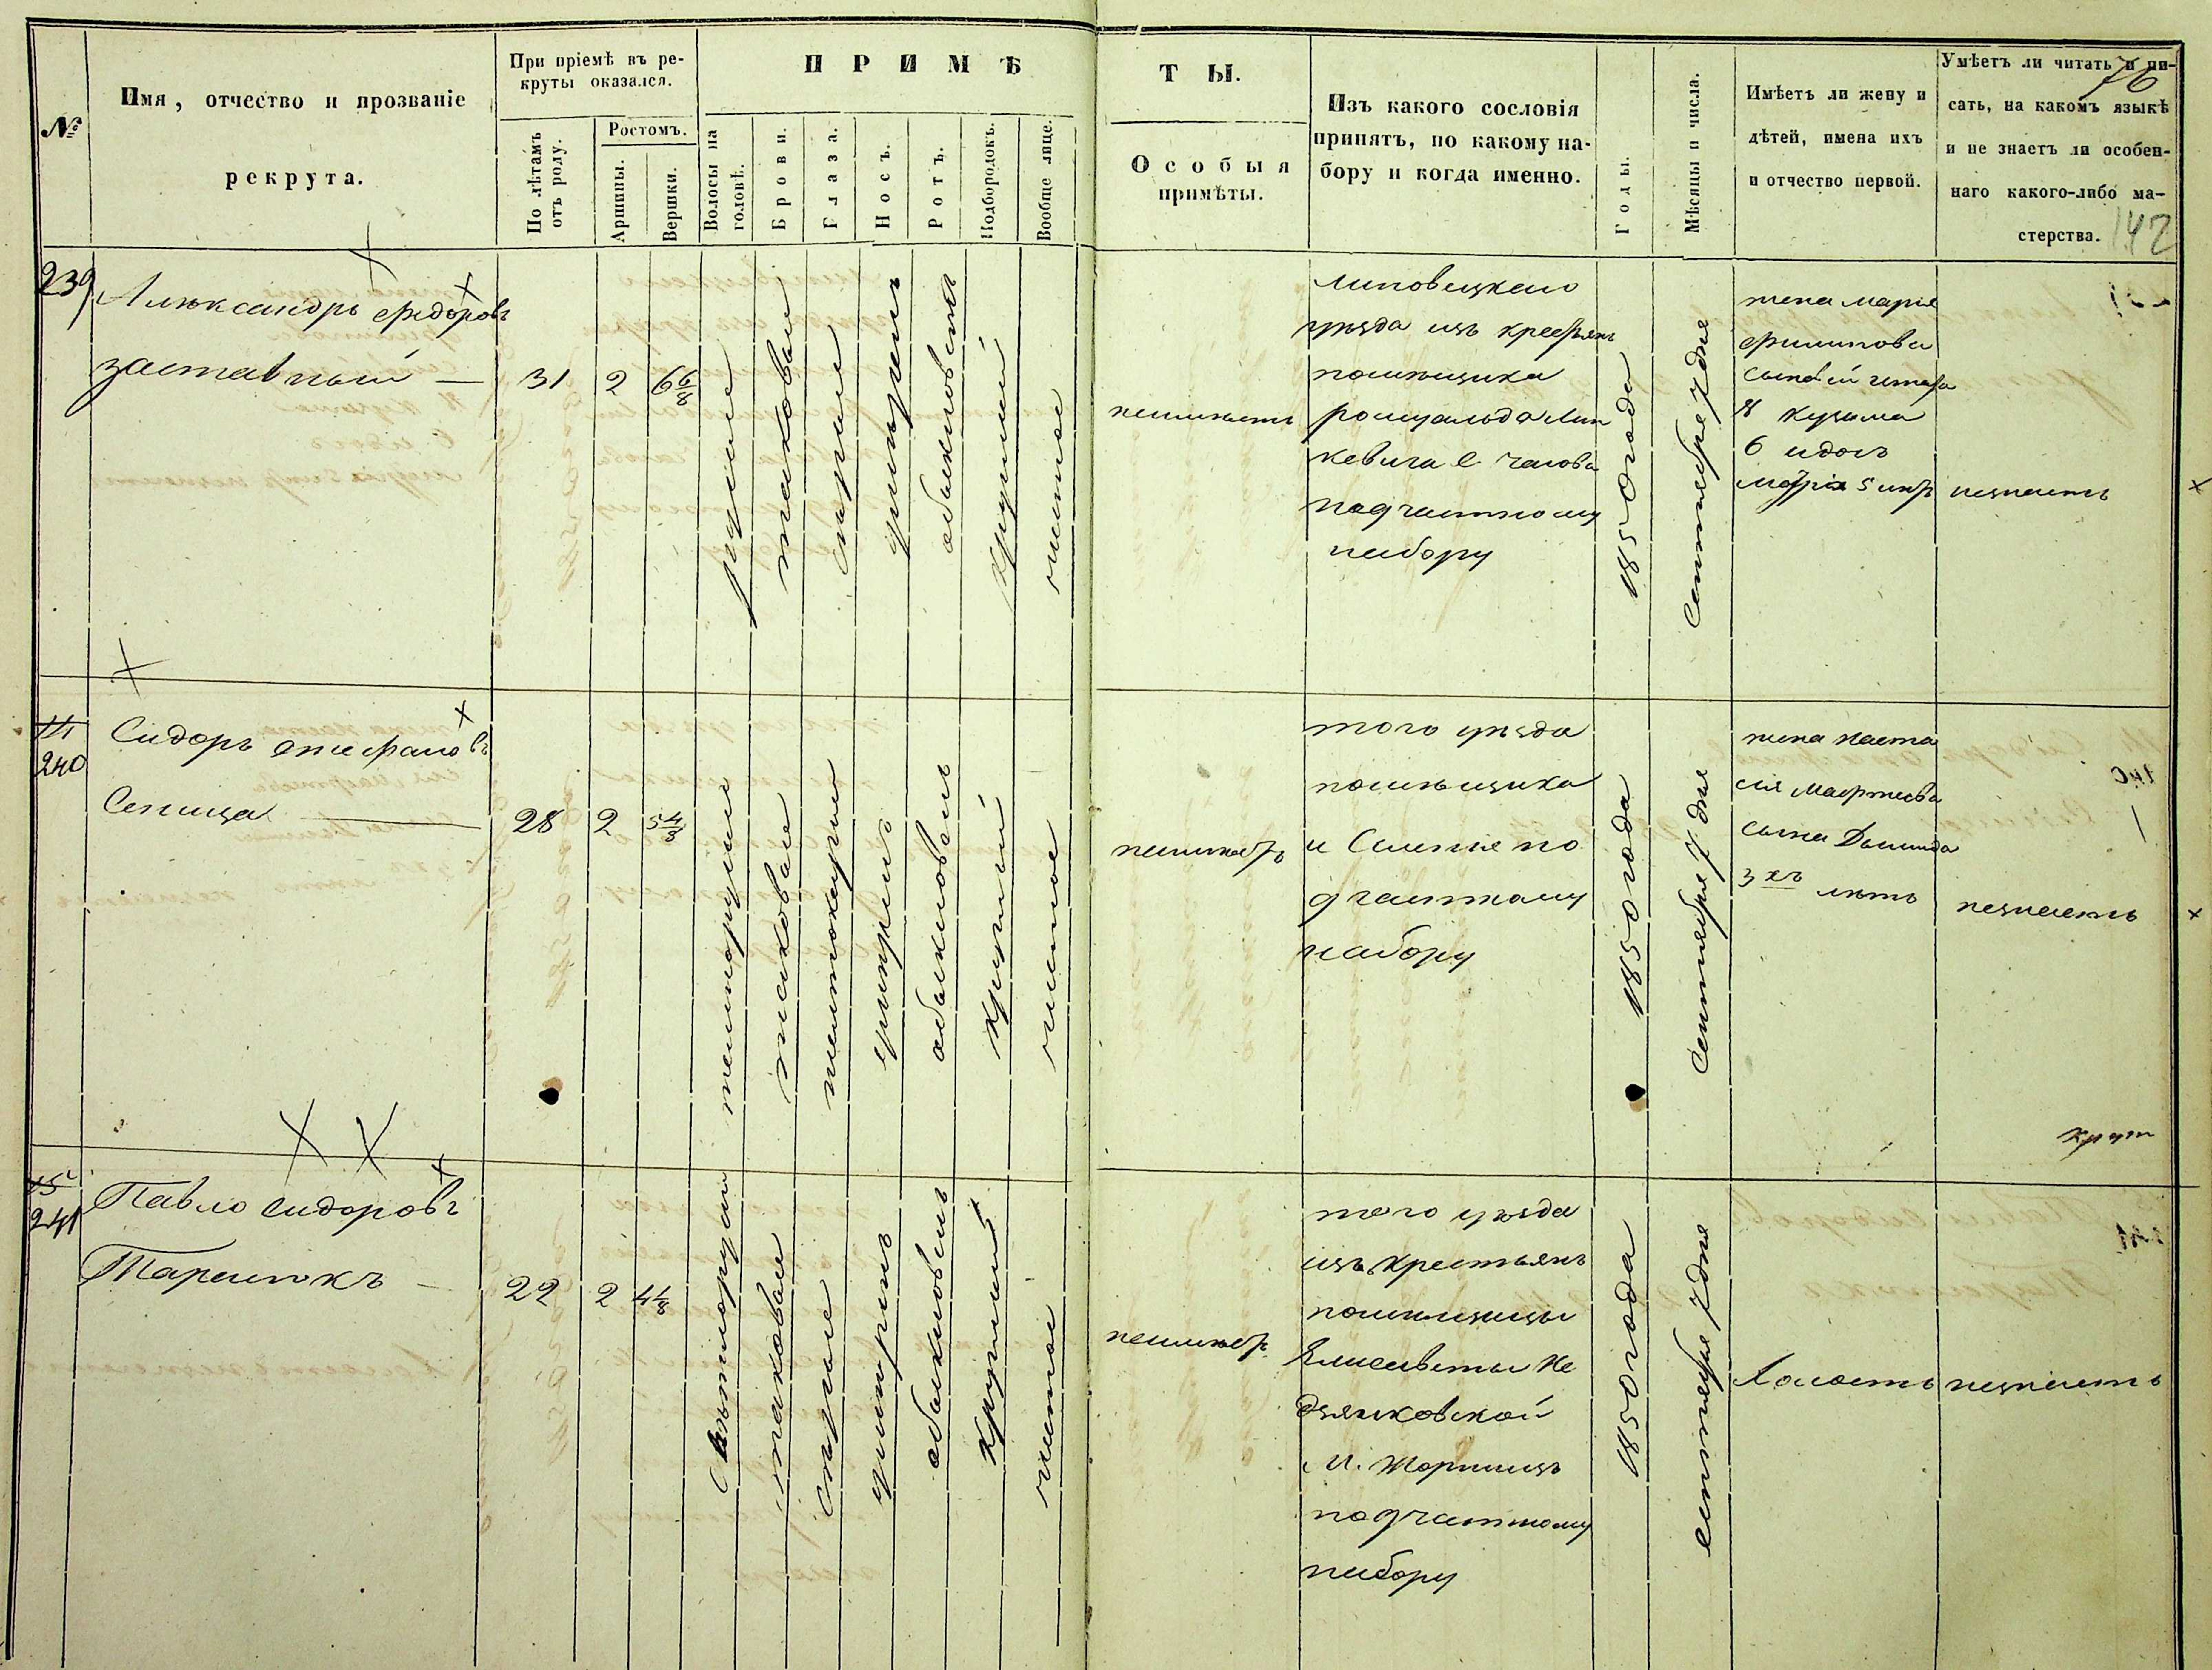 №
Имя, отчество и прозваніе
рекрута.
При пріемѣ въ ре-
круты оказался.
По лѣтамъ
отъ роду.
Ростомъ.
Аршины.
Вершки.
ПРИМѢ
Волосы на
головѣ.
Брови.
Глаза.
Носъ.
Ротъ.
Подбородокъ.
Вообще лице.
ТЫ.
Особыя
примѣты.
Изъ какого сословія
принятъ, по какому на-
бору и когда именно.
Годы.
Мѣсяцы и числа.
Имѣетъ ли жену и
дѣтей, имена ихъ
и отчество первой.
Умѣетъ ли читать и пи-
сать, на какомъ языкѣ
и не знаетъ ли особен-
наго какого-либо ма-
стерства.
76
142
239
Александръ Федоровъ
заставный —
31
2
6 6/8
русые
таковые
сѣрые
умѣренъ
обыкновенъ
круглый
чистое
неимѣетъ
Липовецкаго
уѣзда изъ крестьянъ
помѣщика
ромуальда
кевича с.
подчастному
набору
1850 года
Сентября 7 дня
жена марія
филипова
сыновей
8 кузьма
6 идосъ
марія 5 лѣтъ
незнаетъ
14
240
Сидоръ епифановъ
Сеница —
28
2
5 4/8
темнорусые
таковые
умѣренъ
обыкновенъ
круглый
чистое
неимѣетъ
того уѣзда
помѣщика
и Селенія по
дчастному
набору
1850 года
Сентября 7 дня
жена наста
сія Мартиева
сына
3 хъ лѣтъ
незнаетъ
15
241
Павло Сидоровъ
Тарасюкъ —
22
2
4 1/8
Свѣтлорусые
таковые
сѣрые
умѣренъ
обыкновенъ
круглый
чистое
неимѣетъ
того уѣзда
изъ крестьянъ
помѣщицы
Елисаветы Не
дзялковской
м. Жорнищъ
подчастному
набору
1850 года
сентября 7 дня
Холостъ
незнаетъ